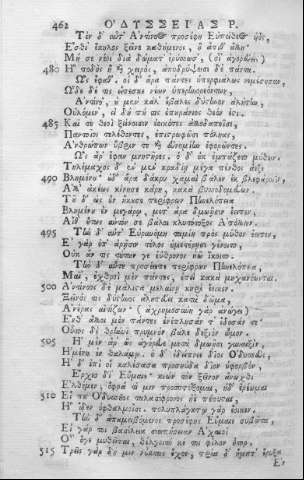 462 Ο'ΔΥΣΣΕΙΑΣ Ρ.
Τὸν δ' αὖτ' Ἀντίνοος προσέφη Εὐπείθεος υἱὸς,
Ἔσθι' ἕκηλος ξεῖνε καθήμενος, ἢ ἄπιθ' ἄλλῃ·
Μή σε νέοι διὰ δώματ' ἐρύσωσ', (οἷ' ἀγορεύεις)
480 Ἢ ποδὸς ἢ καὶ χειρὸς, ἀποδρύψωσι δὲ πάντα.
Ὣς ἔφαθ', οἱ δ' ἄρα πάντες ὑπερφιάλως νεμέσησαν·
Ὧδε δέ τις εἴπεσκε νέων ὑπερηνορεόντων,
Ἀντίνο', οὐ μὲν καλ' ἔβαλες δύστηνον ἀλήτην,
Οὐλόμεν', εἰ δή πού τις ἐπουράνιος θεός ἐστι.
485 Καί τε θεοὶ ξείνοισιν ἐοικότες ἀλλοδαποῖσι,
Παντοῖοι τελέθοντες, ἐπιστρωφῶσι πόληας,
Ἀνθρώπων ὕβριν τε καὶ εὐνομίην ἐφορῶντες.
Ὣς ἄρ' ἔφαν μνηστῆρες, ὁ δ' οὐκ ἐμπάζετο μύθων.
Τηλέμαχος δ' ἐν μὲν κραδίῃ μέγα πένθος ἄεξε
490 Βλημένου· οὐδ' ἄρα δάκρυ χαμαὶ βάλεν ἐκ βλεφάροιϊν,
Ἀλλ' ἀκέων κίνησε κάρη, κακὰ βυσσοδομεύων.
Τοῦ δ' ὡς ἂν ἤκουσε περίφρων Πηνελόπεια
Βλημένου ἐν μεγάρῳ, μετ' ἄρα δμωῇσιν ἔειπεν,
Αἴθ' οὕτως αὐτόν σε βάλοι κλυτότοξος Ἀπόλλων.
495 Τὴν δ' αὖτ' Εὐρυνόμη ταμίη πρὸς μῦθον ἔειπεν,
Εἰ γὰρ ἐπ' ἀρῇσιν τέλος ἡμετέρῃσι γένοιτο,
Οὐκ ἄν τις τούτων γε ἐύθρονον ἠῶ ἵκοιτο.
Τὴν δ' αὖτε προσέειπε περίφρων Πηνελόπεια,
Μαῖ', ἐχθροὶ μὲν πάντες, ἐπεὶ κακὰ μηχανόωνται·
500 Ἀντίνοος δὲ μάλιστα μελαίνῃ κηρὶ ἔοικεν.
Ξεῖνός τις δύστηνος ἀλητεύει κατὰ δῶμα,
Ἀνέρας αἰτίζων· (ἀχρημοσύνη γὰρ ἀνώγει)
Ἔνθ' ἄλλοι μὲν πάντες ἐνέπλησάν τ' ἔδοσάν τε·
Οὗτος δὲ θρήνυι πρυμνὸν βάλε δεξιὸν ὦμον.
505 Ἡ μὲν ἄρ' ὣς ἀγόρευε μετὰ δμωῇσι γυναιξὶν,
Ἡμένη ἐν θαλάμῳ· ὁ δ' ἐδείπνει δῖος Ὀδυσσεύς·
Ἡ δ' ἐπὶ οἷ καλέσασα προσηύδα δῖον ὑφορβὸν,
Ἔρχεο δῖ' Εὔμαιε· κιὼν τὸν ξεῖνον ἄνωχθι
Ἐλθέμεν, ὄφρα τί μιν προσπτύξομαι, ἠδ' ἐρέωμαι
510 Εἴ που Ὀδυσσῆος ταλασίφρονος ἠὲ πέπυσται,
Ἢ ἴδεν ὀφθαλμοῖσι· πολυπλάγκτῳ γὰρ ἔοικεν.
Τὴν δ' ἀπαμειβόμενος προσέφης Εὔμαιε συβῶτα,
Εἰ γάρ τοι βασίλεια σιωπήσειαν Ἀχαιοί·
Οἷ' ὅγε μυθεῖται, θέλγοιτό κέ τοι φίλον ἦτορ.
515 Τρεῖς γὰρ δή μιν νύκτας ἔχον, τρία δ' ἤματ' ἔρυξα
Ἐν